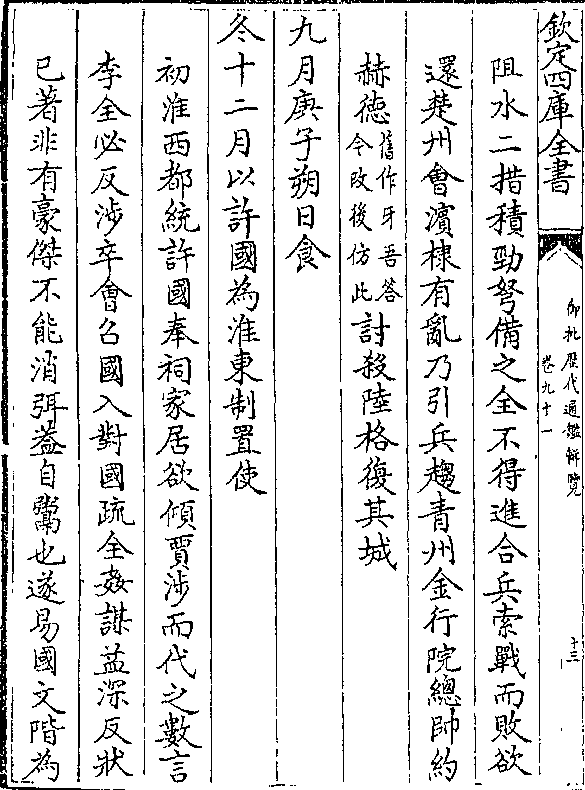 欽定四庫全書
御批歷代通鑑輯覽
卷九十一
十三
阻水二措積勁弩備之全不得進合兵索戰而敗欲
還楚州會濱棣有亂乃引兵趨青州金行院總帥約
赫德舊作牙吾答今改後仿此討殺陸格復其城
九月庚子朔日食
冬十二月以許國為淮東制置使
初淮西都統許國奉祠家居欲傾賈涉而代之數言
李全必反涉卒會召國入對國疏全姦謀益深反狀
已著非有豪傑不能消弭葢自鬻也遂易國文階為